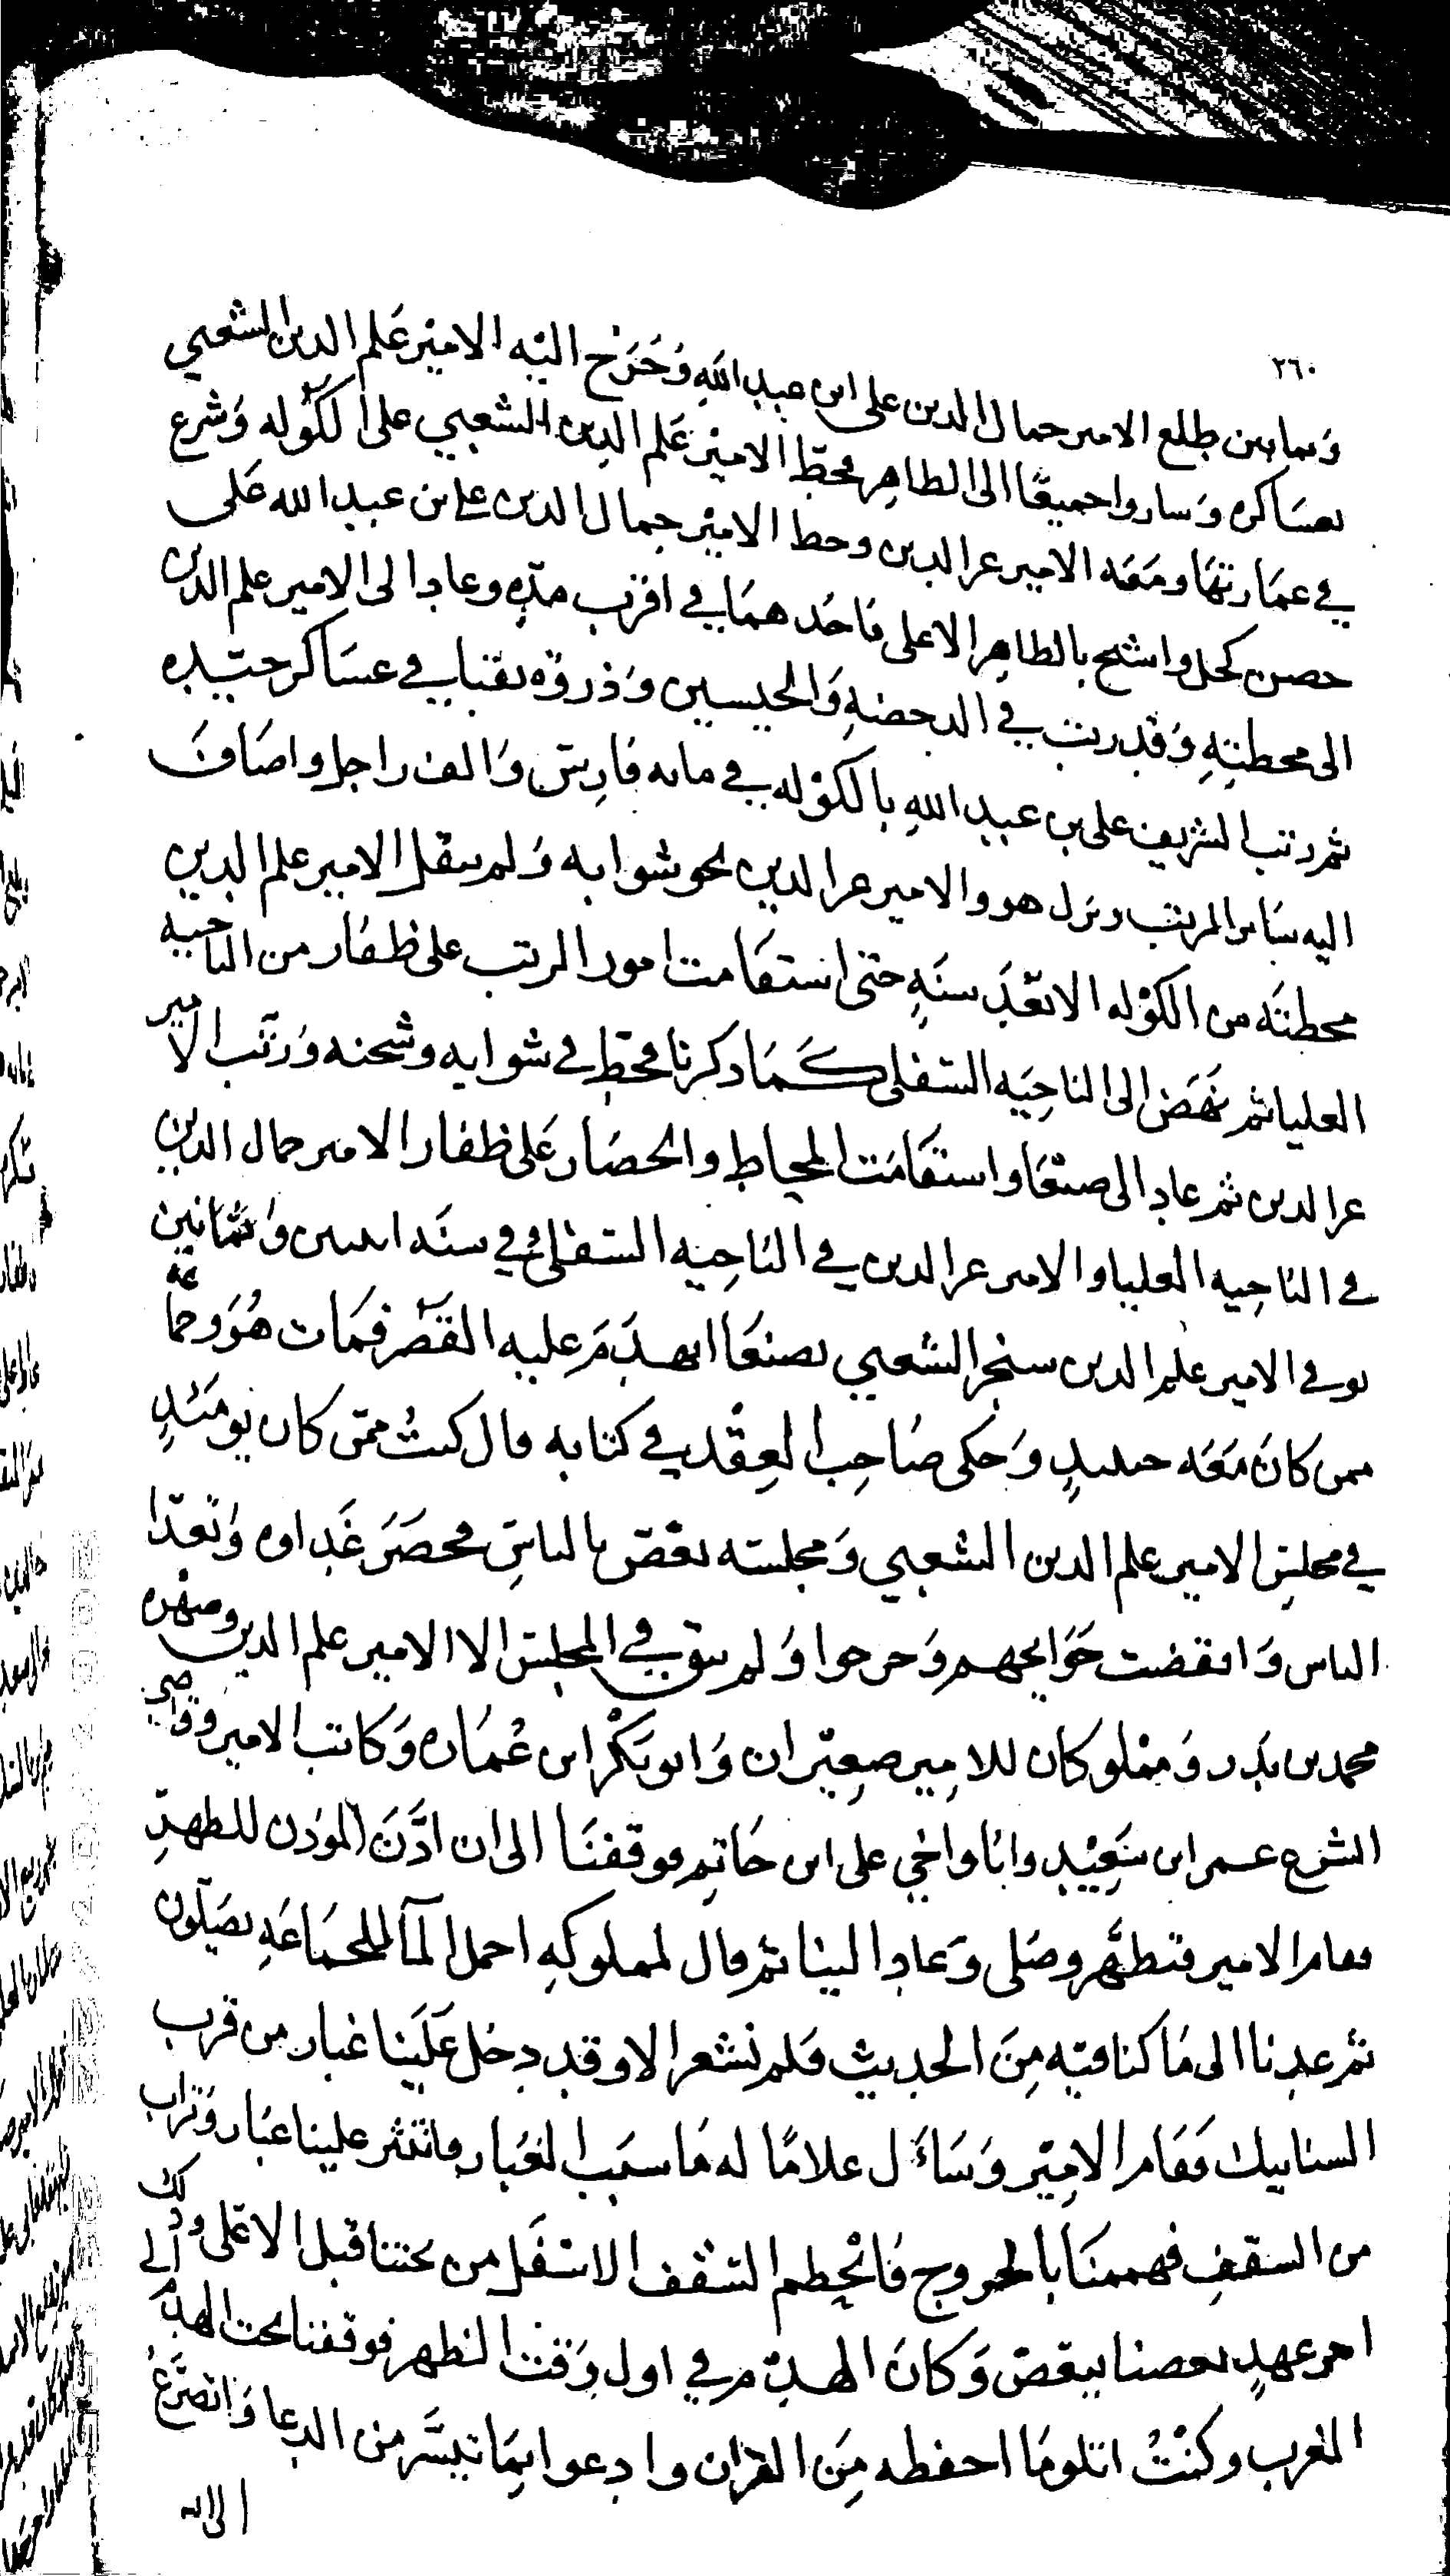 ٢٦٠
وثمانين طلع الامير جمال الدين على ابن عبد الله وَخَرَج اليْه الاميْر عَلم الدين الشعبي
بعسَاكره وَساروا جميعًا الى الطاهِر محطّ الاميْر عَلم الدِين الشعبي على الكَوْله وَشرع
في عمَارتهَا ومَعَه الامير عز الدين وحط الاميْر جمال الدين علي بن عبد الله عَلى
حصن كحل واشيح بالطاهِر الاعلى فاخَدهمَا في اقرَب مدّهٍ وعاد الى الامير علم الدين
الى محطتِهِ وَقد رتب في الدحضهِ وَالحيسين وَذروَه بقتاب في عسَاكر جيّده
ثم رتب الشريف على بن عبد اللهِ بالكَوْله في مايه فارِسٍ وَالف راجل واضَافَ
اليه سَاير المرتب ونزل هو والامير عز الدين نحو شوابه وَلم ينقل الامير علم الدين
محطتَه من الكَوْله الا بَعْدَ سنَهٍ حتى استقامت امور الرتب على ظفار من الناحيه
العليا ثم نهَضَ الى الناحِيَه السفلى كَمَا ذكرنا محطّ في شوابه وشحنه وَرَتّب الامير
عز الدين ثم عاد الى صنعَا واستقَامَت المحاط والحصَار عَلى ظفار الامير جمال الدين
في الناحِيه العليا والامير عز الدين في الناحِيه السفلى وَفي سنَه اثنين وَثمَانين
توفي الامير علم الدين سنجر الشعبي بصنعَا انهدَمَ عليه القصْر فمَات هُوَ وجماعة
ممن كانَ مَعَه حينيدٍ وَحكى صَاحِب العِقْد في كتابه قال كنتُ ممّن كان يَومَئدٍ
في مجلسِ الامير علم الدين الشعبي وَمجلسه بغصّ بالناسِ محضَرَ غَداوه وَتغدّا
الناس وَانقضت حَوَايجهم وَخرجوا وَلم يبق في المجلس الا الامير علم الدين وصهره
محمد بن بدر وَممْلوكان للامِير صغِيْران وَابو بَكْر ابن عُمَاره وَكاتب الامير وقاضي
الشرع عمر ابن سَعِيْد وانا واخي على ابن حَاتِم فوقفنَا الى ان ادَّنَ المودن للطهر
فقام الامير فتطهَّر وصَلى وَعاد الينا ثم قال لمملوكيهِ احمل المآ للجمَاعَهِ يصَلّون
ثم عدنا الى مَا كنا فيه مِنَ الحديث فلم نشعر الا وقد دخل عَلَينا غبار من قرب
السنابيك فقَام الامِيْر وَسَاءَل علامًا له مَا سبَب الغبَار فانتثر علينا غبَار وَترَاب
من السقفِ فهممنَا بالخروج فانحطم السّقف الاسفَل من تحتنا قبل الاعلى ودلك
اخر عهدٍ بعضنا ببعضٍ وَكانَ الهدم في اول وَقت الظهر فوقفنا تحت الهدم الى
المغرب وكنْتُ اتلو مَا احفطه مِنَ القرَان وادعوا بِمَا تيَسَّر من الدعا وَاتضَرَّعُ
الى الله